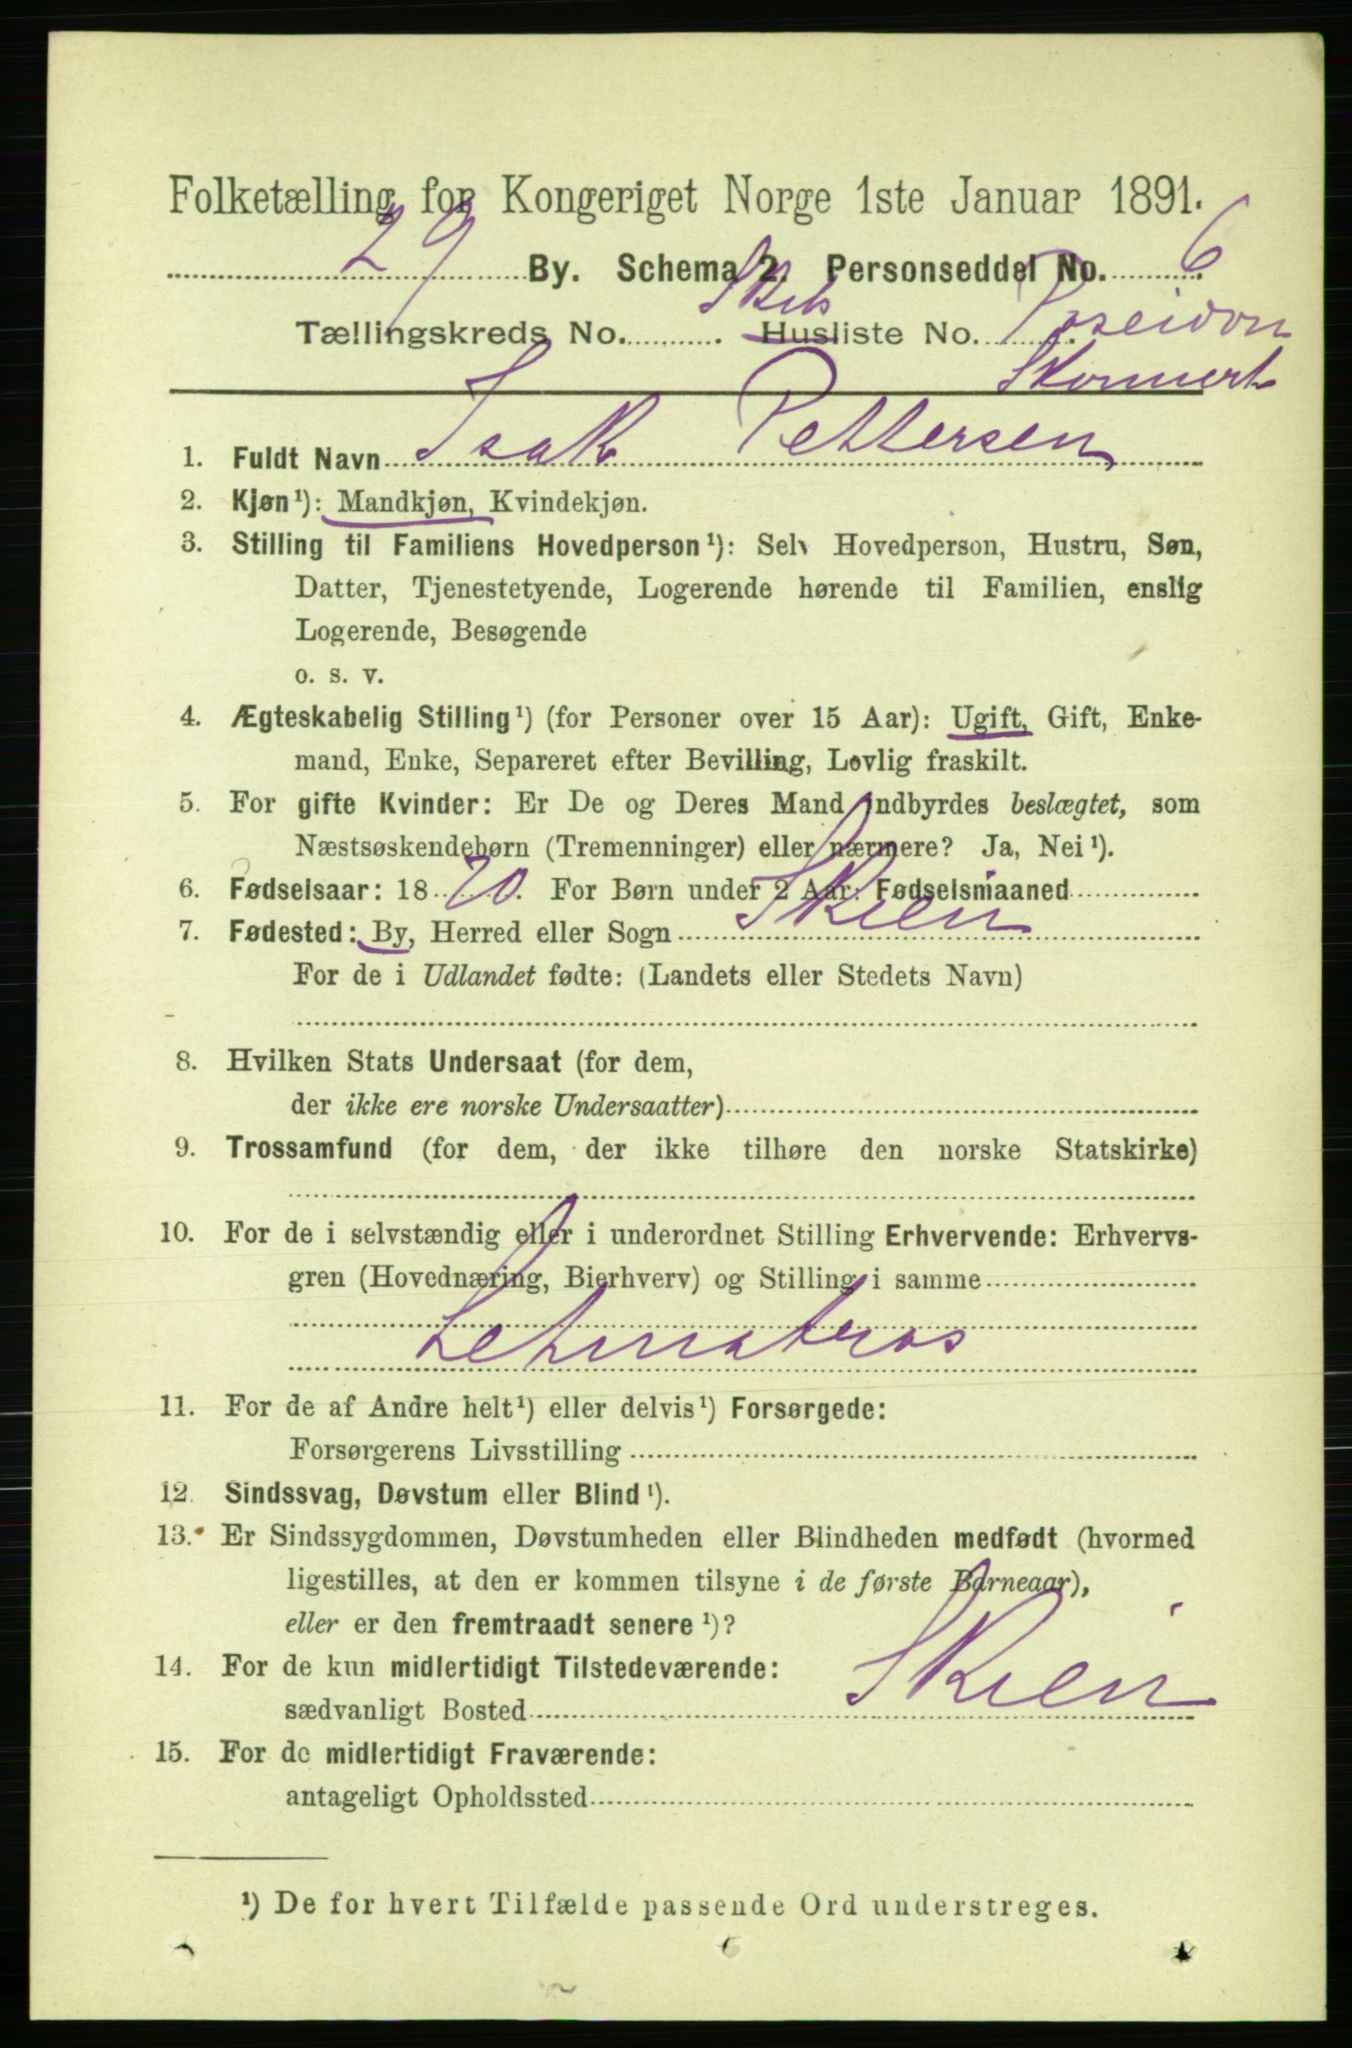 Folketælling for Kongeriget Norge 1ste Januar 1891.
29 By. Schema 2. Personseddel No. 6
Tællingskreds No. . Skibs Husliste No. Poseidon
Skonnert
1. Fuldt Navn Isak Pettersen
2. Kjøn¹): Mandkjøn, Kvindekjøn.
3. Stilling til Familiens Hovedperson¹): Selv Hovedperson, Hustru, Søn,
Datter, Tjenestetyende, Logerende hørende til Familien, enslig
Logerende, Besøgende
o. s. v.
4. Ægteskabelig Stilling¹) (for Personer over 15 Aar): Ugift, Gift, Enke-
mand, Enke, Separeret efter Bevilling, Lovlig fraskilt.
5. For gifte Kvinder: Er De og Deres Mand indbyrdes beslægtet, som
Næstsøskendebørn (Tremenninger) eller nærmere? Ja, Nei¹).
6. Fødselsaar: 18 70. For Børn under 2 Aar: Fødselsmaaned
7. Fødested: By, Herred eller Sogn Skien
For de i Udlandet fødte: (Landets eller Stedets Navn)
8. Hvilken Stats Undersaat (for dem,
der ikke ere norske Undersaatter)
9. Trossamfund (for dem, der ikke tilhøre den norske Statskirke)
10. For de i selvstændig eller i underordnet Stilling Erhvervende: Erhvervs-
gren (Hovednæring, Bierhverv) og Stilling i samme
Letmatros
11. For de af Andre helt¹) eller delvis¹) Forsørgede:
Forsørgerens Livsstilling
12. Sindssvag, Døvstum eller Blind¹).
13. Er Sindssygdommen, Døvstumheden eller Blindheden medfødt (hvormed
ligestilles, at den er kommen tilsyne i de første Barneaar),
eller er den fremtraadt senere¹)?
14. For de kun midlertidigt Tilstedeværende:
sædvanligt Bosted Skien
15. For de midlertidigt Fraværende:
antageligt Opholdssted
¹) De for hvert Tilfælde passende Ord understreges.